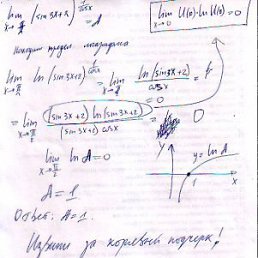 lim (sin3x+2)^(1/cosx) = A
x→π/2
lim U(x)·ln U(x) = 0
Находим предел логарифма
lim ln (sin3x+2)^(1/cosx) = lim ln(sin3x+2)/cosx =
= lim (sin3x+2) ln(sin3x+2) / (sin3x+2) cosx = 0
x→π/2
lim ln A = 0
x→π/2
A = 1
y
y = ln A
1
x
Ответ: A=1.
Извини за корявый подчерк!